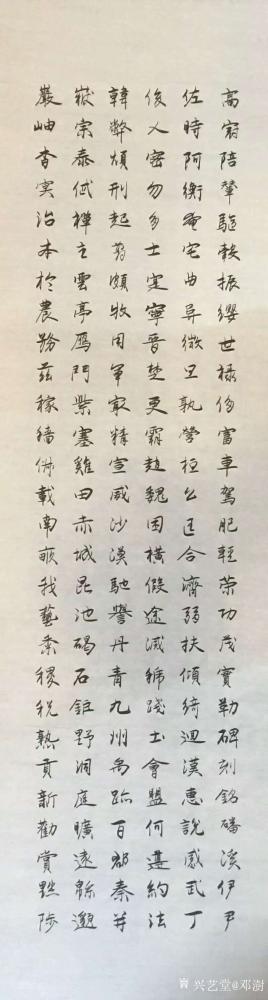 高冠陪輦驅轂振纓世祿侈富車駕肥輕策功茂實勒碑刻銘磻溪伊尹
佐時阿衡奄宅曲阜微旦孰營桓公匡合濟弱扶傾綺迴漢惠說感武丁
俊乂密勿多士寔寧晉楚更霸趙魏困橫假途滅虢踐土會盟何遵約法
韓弊煩刑起翦頗牧用軍最精宣威沙漠馳譽丹青九州禹跡百郡秦并
嶽宗泰岱禪主雲亭雁門紫塞雞田赤城昆池碣石鉅野洞庭曠遠緜邈
巖岫杳冥治本於農務茲稼穡俶載南畝我藝黍稷稅熟貢新勸賞黜陟
兴艺堂@邓澍